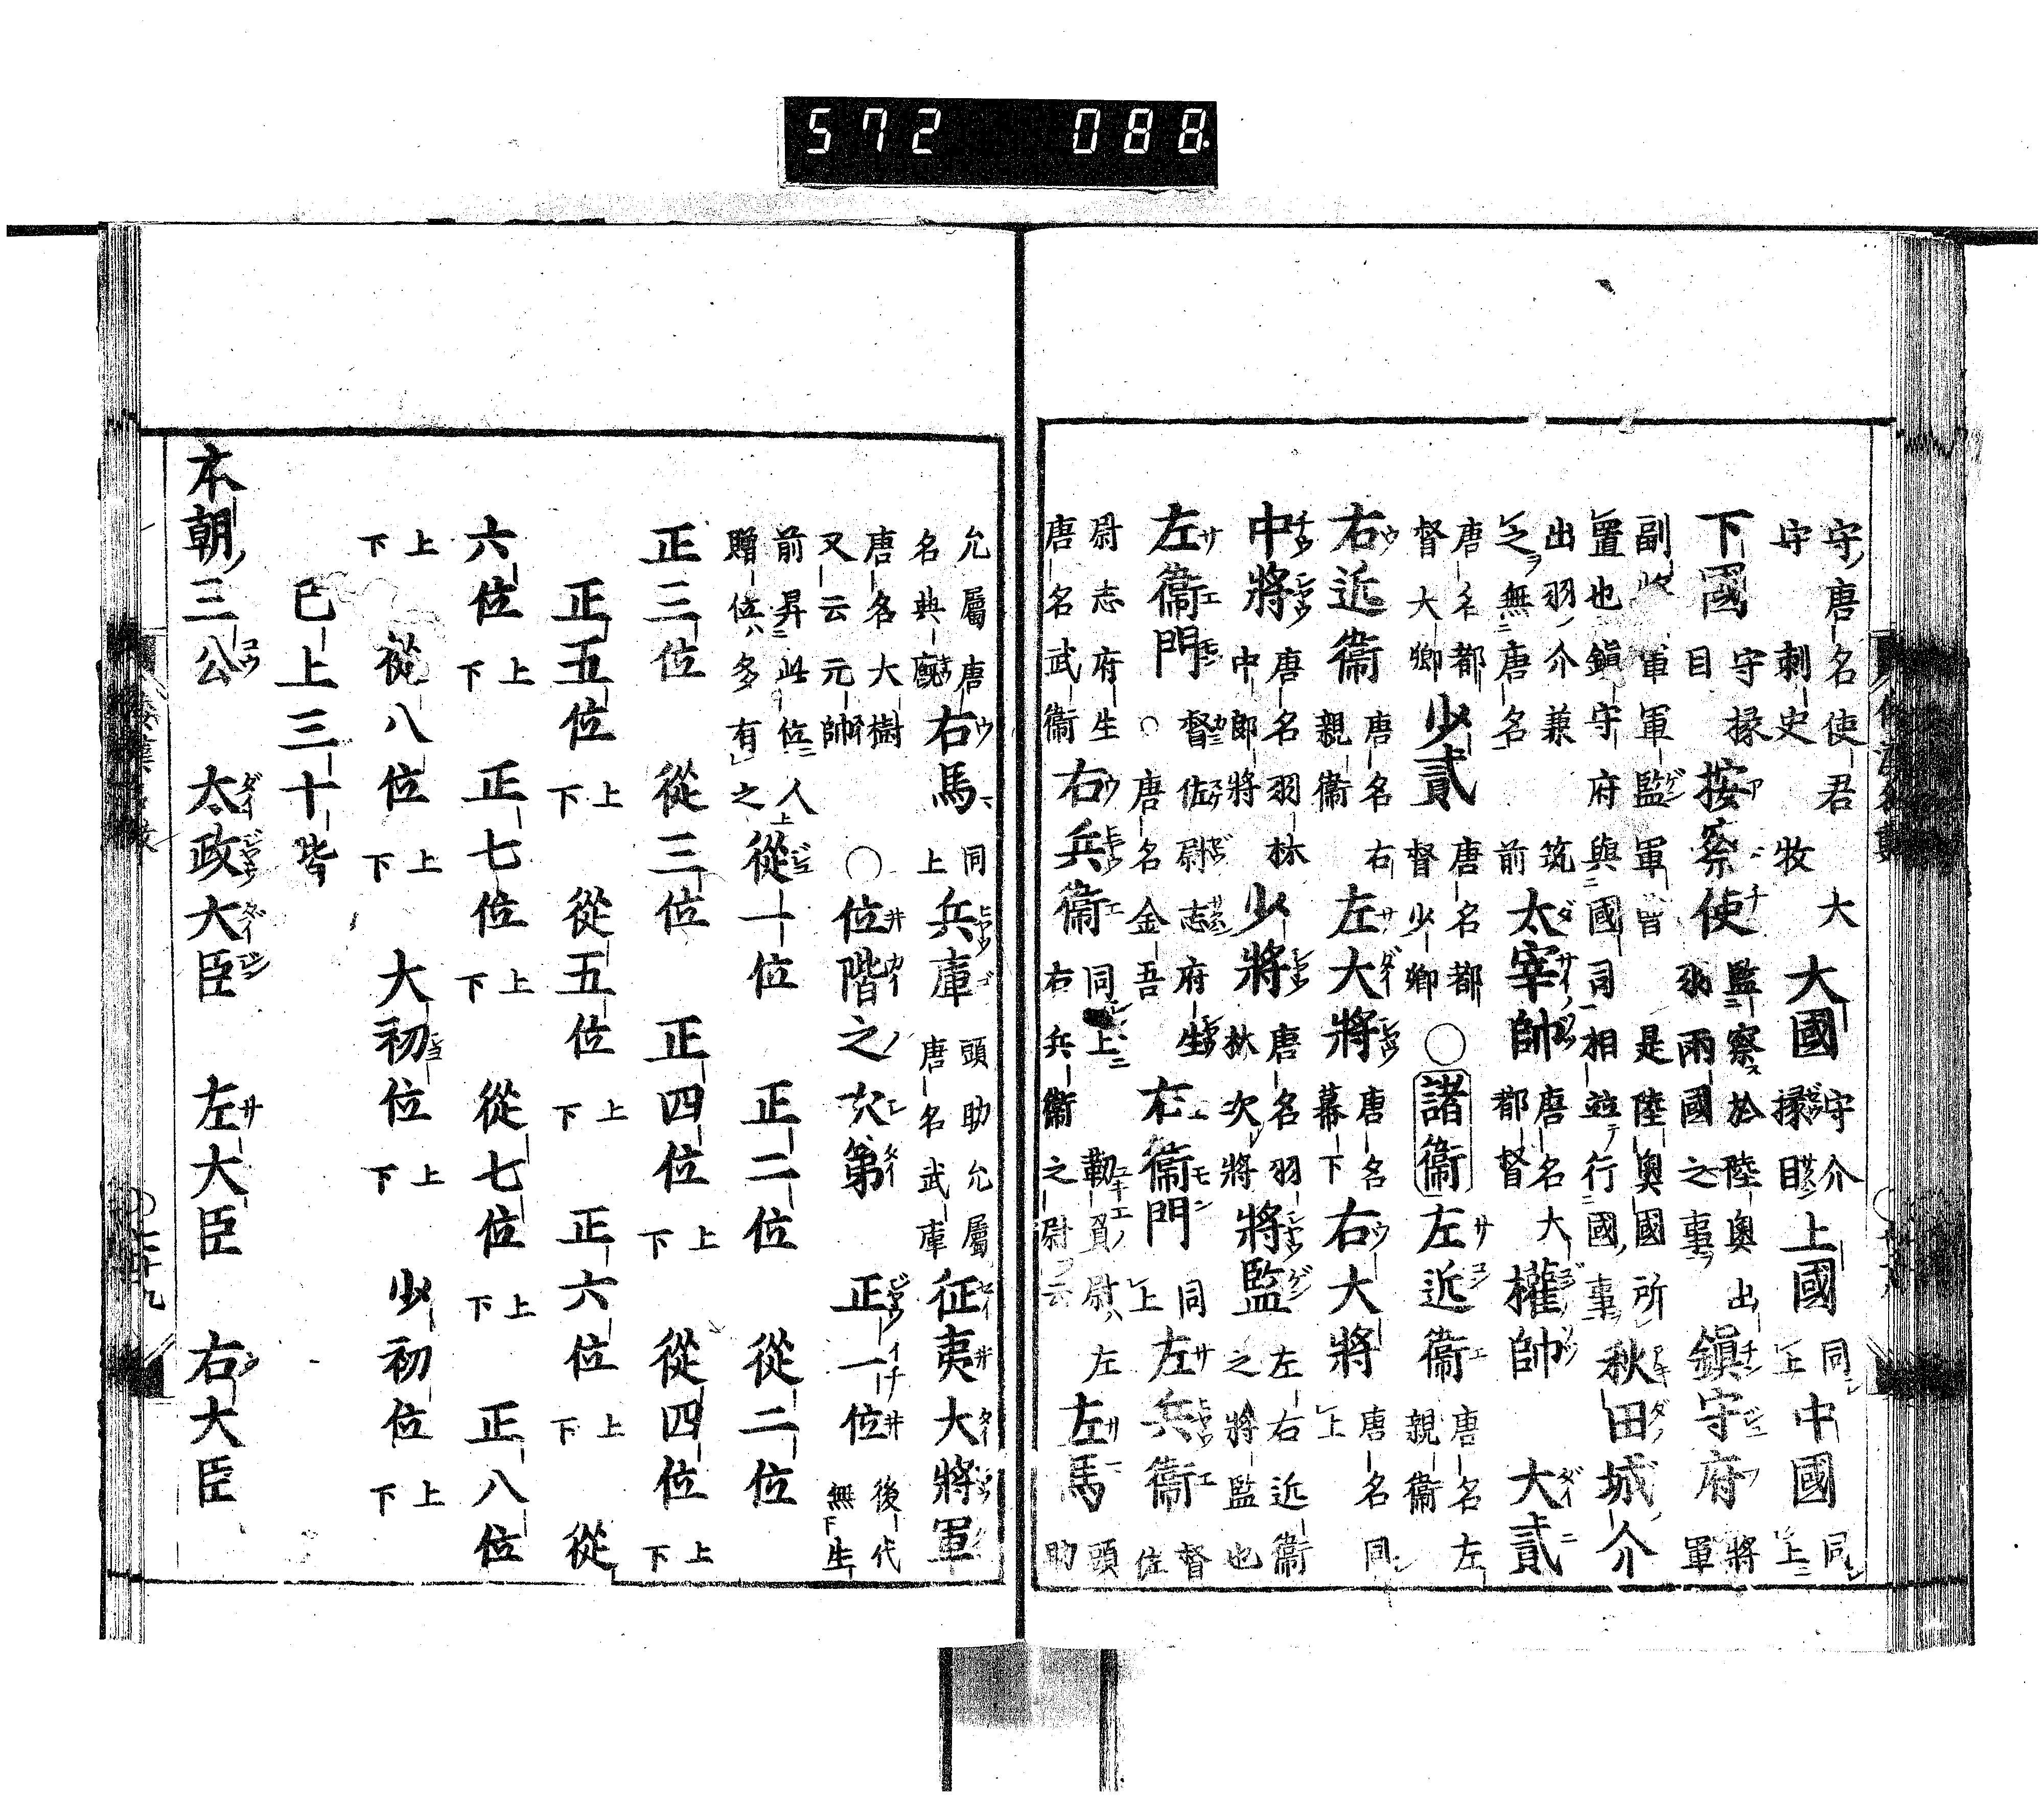 572 088
守唐名使君 大 大國 守介 上國 同 中國 同
守 刺史 牧 掾目 上 上
下國 守掾 按察使 監察於陸奥出 鎮守府 將
目 羽兩國之事 軍
副將軍軍監軍曹 是陸奥國所 秋田城介
置也鎮守府與國司相並行國事
出羽介兼 筑 太宰帥 唐名大 權帥 大貳
之無唐名 前 都督
唐名都 少貳 唐名都 ○諸衞 左近衞 唐名左
督大卿 督少卿 親衞
右近衞 唐名右 左大將 唐名 右大將 唐名同
親衞 幕下 上
中將 唐名羽林 少將 唐名羽 將監 左右近衞
中郎將 林次將 之將監也
左衞門 督佐尉志府生 右衞門 同 左兵衞 督
○唐名金吾 上 佐
尉志府生 右兵衞 同上 靱負尉 左 左馬 頭
唐名武衞 右兵衞之尉云 助
允屬唐 右馬 同 兵庫 頭助允屬 征夷大將軍
名典廐 上 唐名武庫
唐名大樹 ○位階之次第 正一位 後代
又云元帥 無生
前昇此位人 從一位 正二位 從二位
贈位多有之
正三位 從三位 正四位 上下 從四位 上下
正五位 上下 從五位 上下 正六位 上下 從
六位 上下 正七位 上下 從七位 上下 正八位
上下 從八位 上下 大初位 上下 少初位 上下
已上三十階
本朝三公 太政大臣 左大臣 右大臣